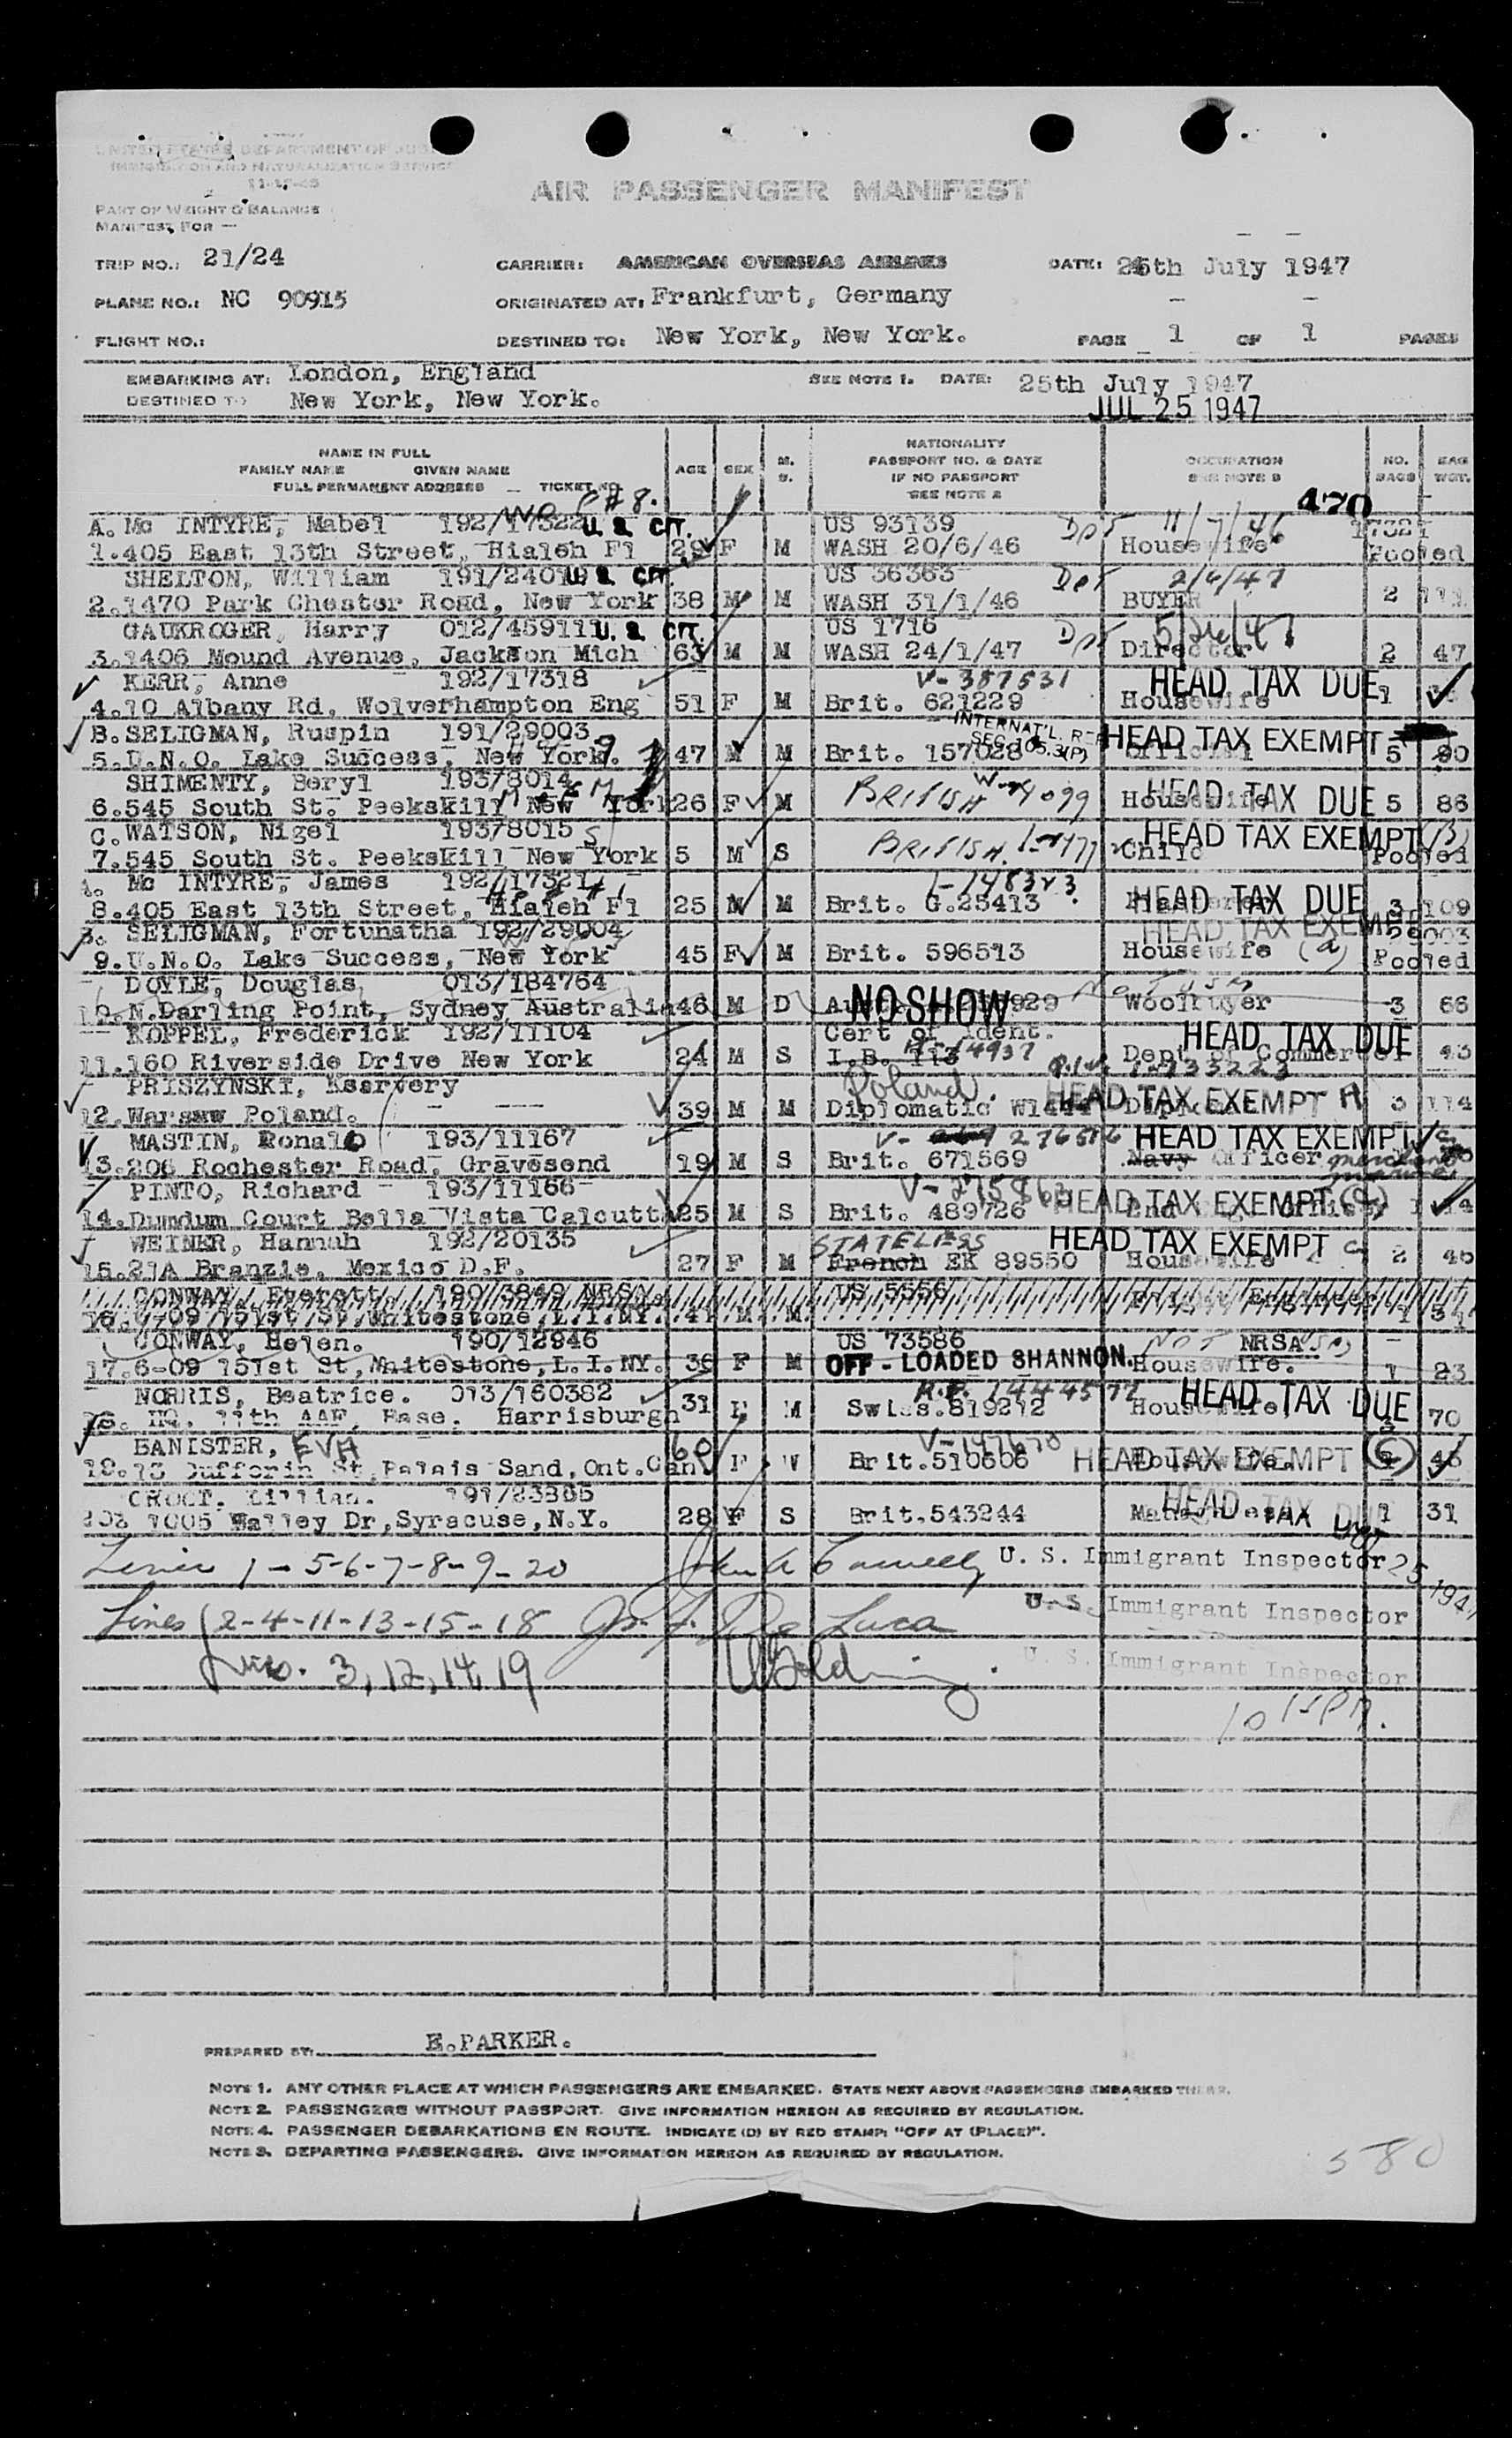 UNITED STATES DEPARTMENT OF
IMMIGRATION AND NATURALIZATION SERVICE
AIR PASSENGER MANIFEST
PART OF WEIGHT & BALANCE
MANIFEST FOR —
TRIP NO.: 21/24 CARRIER: AMERICAN OVERSEAS AIRLINES DATE: 25th July 1947
PLANE NO.: NC 90915 ORIGINATED AT: Frankfurt, Germany
FLIGHT NO.: DESTINED TO: New York, New York. PAGE 1 OF 1 PAGES
EMBARKING AT: London, England SEE NOTE 1. DATE: 25th July 1947
DESTINED TO New York, New York. JUL 25 1947
NAME IN FULL
FAMILY NAME GIVEN NAME
FULL PERMANENT ADDRESS — TICKET NO.
AGE SEX M. S.
NATIONALITY
PASSPORT NO. & DATE
IF NO PASSPORT
SEE NOTE 2
OCCUPATION
SEE NOTE 3
NO. BAGS BAG WGT.
470
A. Mc INTYRE, Mabel 192/17322 U.S. CIT. US 93139 Dpt 11/7/46 17321
1. 405 East 13th Street, Hialeh Fl 29 F M WASH 20/6/46 Housewife Pooled
SHELTON, William U.S. CIT. US 36363 Dpt
2. 1470 Park Chester Road, New York 38 M M WASH 31/1/46 BUYER 2
GAUKROGER, Harry 012/459111 U.S. CIT. US 1716 Dpt
3. 1406 Mound Avenue, Jackson Mich 63 M M WASH 24/1/47 Director 2 47
KERR, Anne 192/17318 V-357531 HEAD TAX DUE
4. 10 Albany Rd, Wolverhampton Eng 51 F M Brit. 621229 Housewife 1
B. SELIGMAN, Ruspin 191/29003 INTERNAT'L. REP SEC 105.3(P) HEAD TAX EXEMPT
5. U.N.O. Lake Success, New York. 47 M M Brit. 157028 Official 5 90
SHIMENTY, Beryl 193/8014 HEAD TAX DUE
6. 545 South St. Peekskill New York 26 F M BRITISH Housewife 5 86
C. WATSON, Nigel 193/8015 HEAD TAX EXEMPT (B)
7. 545 South St. Peekskill New York 5 M S BRITISH Child Pooled
A. Mc INTYRE, James 192/17321 HEAD TAX DUE
8. 405 East 13th Street, Hialeh Fl 25 M M Brit. G.25413 3 109
B. SELIGMAN, Fortunatha 192/29004 HEAD TAX EXEMPT 29003
9. U.N.O. Lake Success, New York 45 F M Brit. 596513 Housewife (a) Pooled
DOYLE, Douglas 013/184764 NO SHOW
10. N. Darling Point, Sydney Australia 46 M D Woolbuyer 3 66
KOPPEL, Frederick 192/11104 Cert of Ident. HEAD TAX DUE
11. 160 Riverside Drive New York 24 M S I.B. 113 Dept of Commerce 43
PRISZYNSKI, Ksarvery Poland. HEAD TAX EXEMPT A
12. Warsaw Poland. 39 M M Diplomatic 3 114
MASTIN, Ronald 193/11167 HEAD TAX EXEMPT
13. 206 Rochester Road, Gravesend 19 M S Brit. 671569 Navy Officer merchant marine
PINTO, Richard 193/11166 HEAD TAX EXEMPT
14. Dumdum Court Bella Vista Calcutta 25 M S Brit. 489726
WEINER, Hannah 192/20135 STATELESS HEAD TAX EXEMPT
15. 21A Branzie, Mexico D.F. 27 F M French EK 89550 Housewife 2 45
CONWAY, Everett. 190/3849 NRSA US 5556
16. 6-09 151st St, Whitestone, L.I. NY. M M
CONWAY, Helen. 190/12846 US 73586 NRSA
17. 6-09 151st St, Whitestone, L.I. NY. 36 F M OFF - LOADED SHANNON. Housewife. 1 23
NORRIS, Beatrice. 013/160382 HEAD TAX DUE
HQ. 11th AAF, Base. Harrisburgh 31 F M Swiss. 819212 Housewife. 70
BANISTER, EVA HEAD TAX EXEMPT
19. 13 Dufferin St, Palais Sand, Ont. Can. 60 F W Brit. 510606 Housewife.
CROOT, Lillian. 191/23385 HEAD TAX DUE
1005 Walley Dr, Syracuse, N.Y. 28 F S Brit. 543244 1 31
Lines 1-5-6-7-8-9-20 U. S. Immigrant Inspector
Lines 2-4-11-13-15-18 U. S. Immigrant Inspector
3, 12, 14, 19 U. S. Immigrant Inspector
10 15 PM.
PREPARED BY: E. PARKER.
NOTE 1. ANY OTHER PLACE AT WHICH PASSENGERS ARE EMBARKED. STATE NEXT ABOVE PASSENGERS EMBARKED THERE.
NOTE 2. PASSENGERS WITHOUT PASSPORT. GIVE INFORMATION HEREON AS REQUIRED BY REGULATION.
NOTE 4. PASSENGER DEBARKATIONS EN ROUTE. INDICATE (D) BY RED STAMP: "OFF AT (PLACE)".
NOTE 3. DEPARTING PASSENGERS. GIVE INFORMATION HEREON AS REQUIRED BY REGULATION.
580